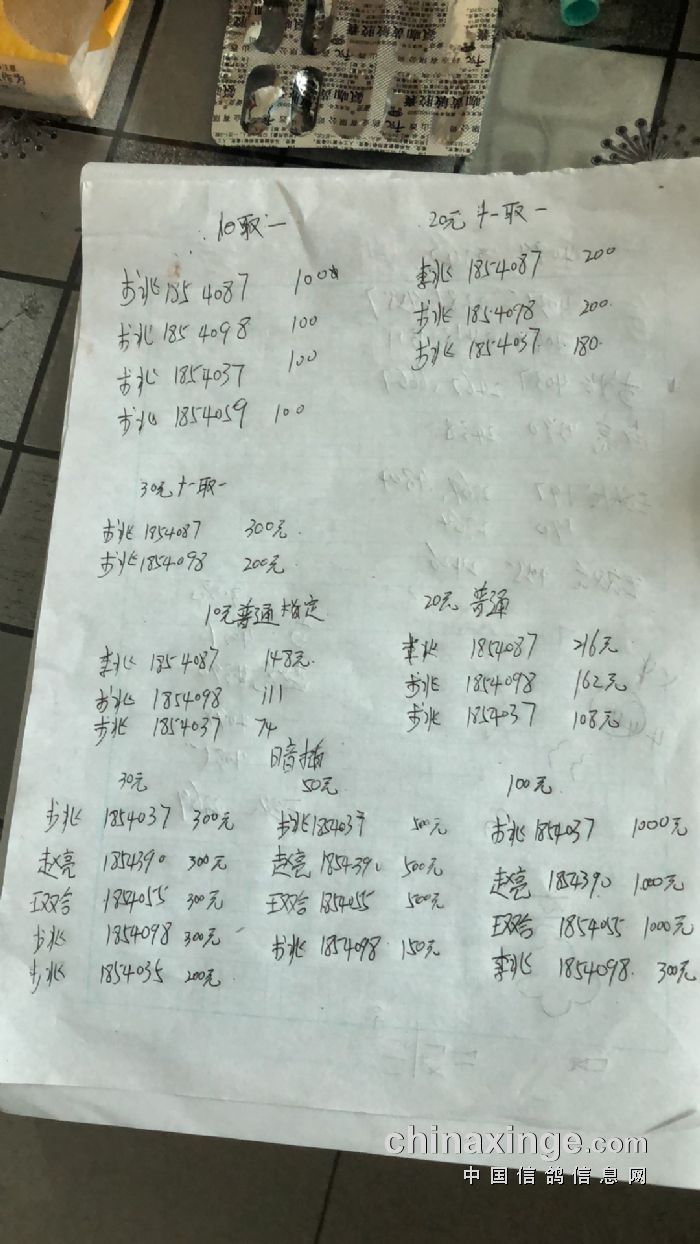 10取一
李兆 1854087 100
李兆 1854098 100
李兆 1854037 100
李兆 1854059 100
20元十取一
李兆 1854087 200
李兆 1854098 200
李兆 1854037 180
30元十取一
李兆 1854087 300元
李兆 1854098 200元
10元普通指定
李兆 1854087 148元
李兆 1854098 111
李兆 1854037 74
20元 普通
李兆 1854087 216元
李兆 1854098 162元
李兆 1854037 108元
暗插
30元
李兆 1854037 300元
赵亮 1854390 300元
王双合 1854055 300元
李兆 1854098 300元
李兆 1854035 200元
50元
李兆 1854037 500元
赵亮 1854390 500元
王双合 1854055 500元
李兆 1854098 150元
100元
李兆 1854037 1000元
赵亮 1854390 1000元
王双合 1854055 1000元
李兆 1854098 300元
chinaxinge.com
中国信鸽信息网